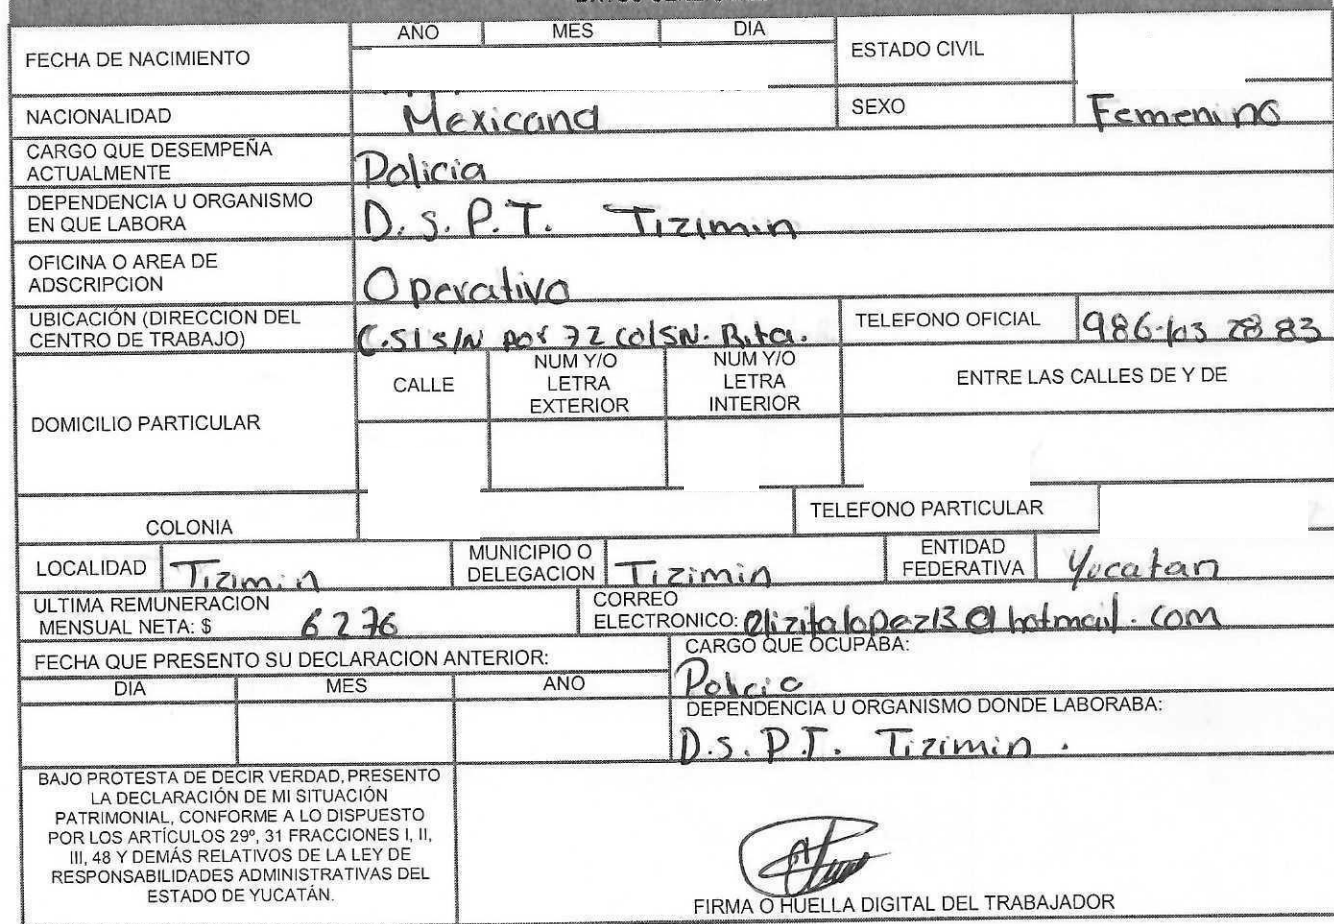 AÑO MES DIA
FECHA DE NACIMIENTO ESTADO CIVIL
NACIONALIDAD Mexicana SEXO Femenino
CARGO QUE DESEMPEÑA
ACTUALMENTE Policia
DEPENDENCIA U ORGANISMO
EN QUE LABORA D. S. P. T. Tizimin
OFICINA O AREA DE
ADSCRIPCION Operativo
UBICACIÓN (DIRECCION DEL
CENTRO DE TRABAJO) C.51 s/N por 72 col SN. Rita. TELEFONO OFICIAL 986-103 28 83
DOMICILIO PARTICULAR
CALLE
NUM Y/O
LETRA
EXTERIOR
NUM Y/O
LETRA
INTERIOR
ENTRE LAS CALLES DE Y DE
COLONIA TELEFONO PARTICULAR
LOCALIDAD Tizimin
MUNICIPIO O
DELEGACION Tizimin
ENTIDAD
FEDERATIVA Yucatan
ULTIMA REMUNERACION
MENSUAL NETA: $ 6276
CORREO
ELECTRONICO: elizitalopez13@hotmail.com
FECHA QUE PRESENTO SU DECLARACION ANTERIOR:
DIA MES AÑO
CARGO QUE OCUPABA:
Policia
DEPENDENCIA U ORGANISMO DONDE LABORABA:
D.S.P.T. Tizimin.
BAJO PROTESTA DE DECIR VERDAD, PRESENTO
LA DECLARACIÓN DE MI SITUACIÓN
PATRIMONIAL, CONFORME A LO DISPUESTO
POR LOS ARTÍCULOS 29º, 31 FRACCIONES I, II,
III, 48 Y DEMÁS RELATIVOS DE LA LEY DE
RESPONSABILIDADES ADMINISTRATIVAS DEL
ESTADO DE YUCATÁN.
FIRMA O HUELLA DIGITAL DEL TRABAJADOR